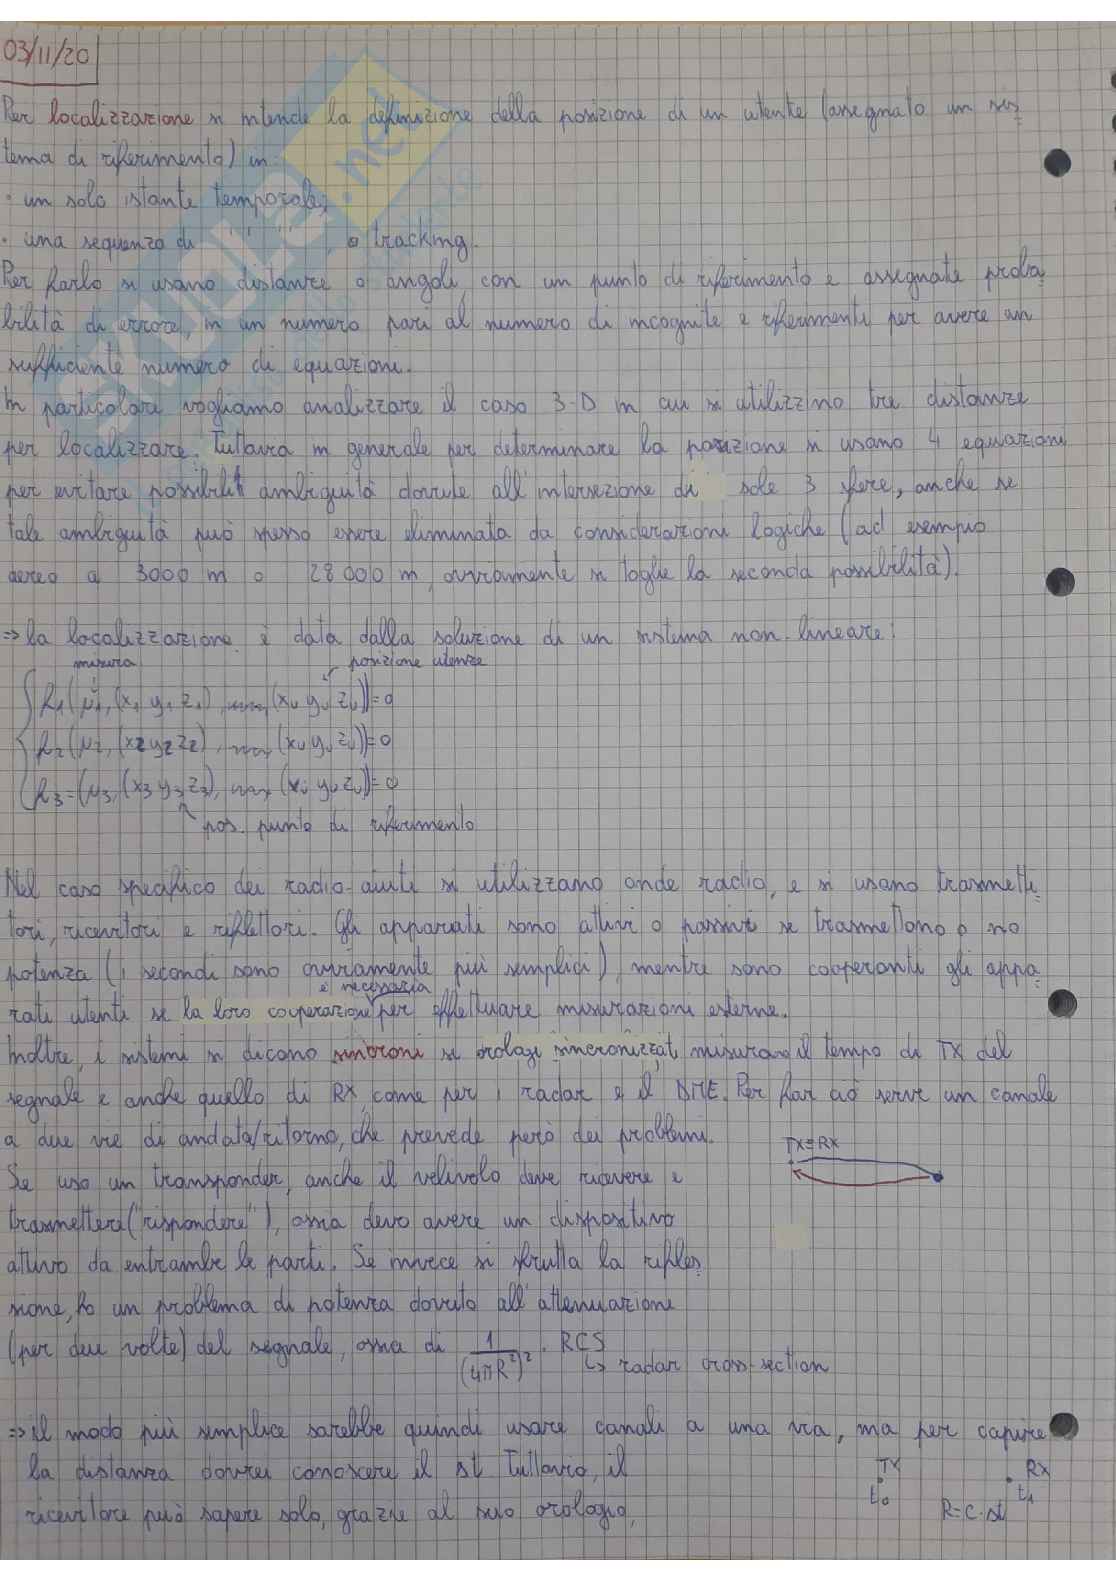 03/11/20
Per localizzazione si intende la definizione della posizione di un utente (assegnato un sis
tema di riferimento) in:
· un solo istante temporale;
· una sequenza di " " , o tracking.
Per farlo si usano distanze o angoli, con un punto di riferimento e assegnate proba
bilità di errore, in un numero pari al numero di incognite e riferimenti per avere un
sufficiente numero di equazioni.
In particolare vogliamo analizzare il caso 3-D in cui si utilizzino tre distanze
per localizzare. Tuttavia in generale per determinare la posizione si usano 4 equazioni
per evitare possibili ambiguità dovute all'intersezione di sole 3 sfere, anche se
tale ambiguità può spesso essere eliminata da considerazioni logiche (ad esempio
aereo a 3000 m o 28000 m, ovviamente si toglie la seconda possibilità).
=> la localizzazione è data dalla soluzione di un sistema non lineare:
misura
posizione utenze
h₁(μ₁, (x₁ y₁ z₁), (xᵤ yᵤ zᵤ))=0
h₂(μ₂, (x₂ y₂ z₂), (xᵤ yᵤ zᵤ))=0
h₃=(μ₃, (x₃ y₃ z₃), (xᵤ yᵤ zᵤ))=0
pos. punto di riferimento
Nel caso specifico dei radio-aiuti si utilizzano onde radio, e si usano trasmetti
tori, ricevitori e riflettori. Gli apparati sono attivi o passivi se trasmettono o no
potenza (i secondi sono ovviamente più semplici), mentre sono cooperanti gli appa
è necessaria
rati utenti se la loro cooperazione per effettuare misurazioni esterne.
Inoltre, i sistemi si dicono sincroni se orologi sincronizzati misurano il tempo di TX del
segnale e anche quello di RX, come per i radar e il DME. Per far ciò serve un canale
a due vie di andata/ritorno, che prevede però dei problemi.
TX≡RX
Se uso un transponder, anche il velivolo deve ricevere e
trasmettere ("rispondere"), ossia devo avere un dispositivo
attivo da entrambe le parti. Se invece si sfrutta la rifles
sione, ho un problema di potenza dovuto all'attenuazione
(per due volte) del segnale, ossia di 1/(4πR²)² · RCS
↳ radar cross-section
=> il modo più semplice sarebbe quindi usare canali a una via, ma per capire
la distanza dovrei conoscere il δt. Tuttavia, il
TX RX
t₀ t₁
R=c·δt
ricevitore può sapere solo, grazie al suo orologio,